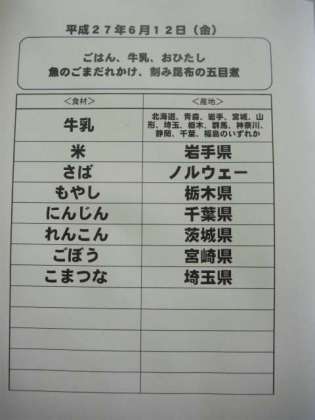 平成２７年６月１２日（金）
ごはん、牛乳、おひたし
魚のごまだれかけ、刻み昆布の五目煮
＜食材＞ ＜産地＞
牛乳 北海道、青森、岩手、宮城、山
形、埼玉、栃木、群馬、神奈川、
静岡、千葉、福島のいずれか
米 岩手県
さば ノルウェー
もやし 栃木県
にんじん 千葉県
れんこん 茨城県
ごぼう 宮崎県
こまつな 埼玉県